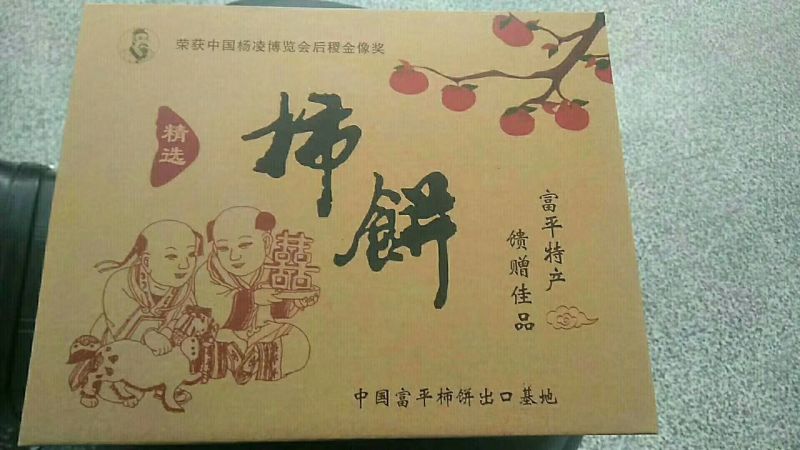 荣获中国杨凌博览会后稷金像奖
精选
柿餅
富平特产
馈赠佳品
囍
中国富平柿餅出口基地